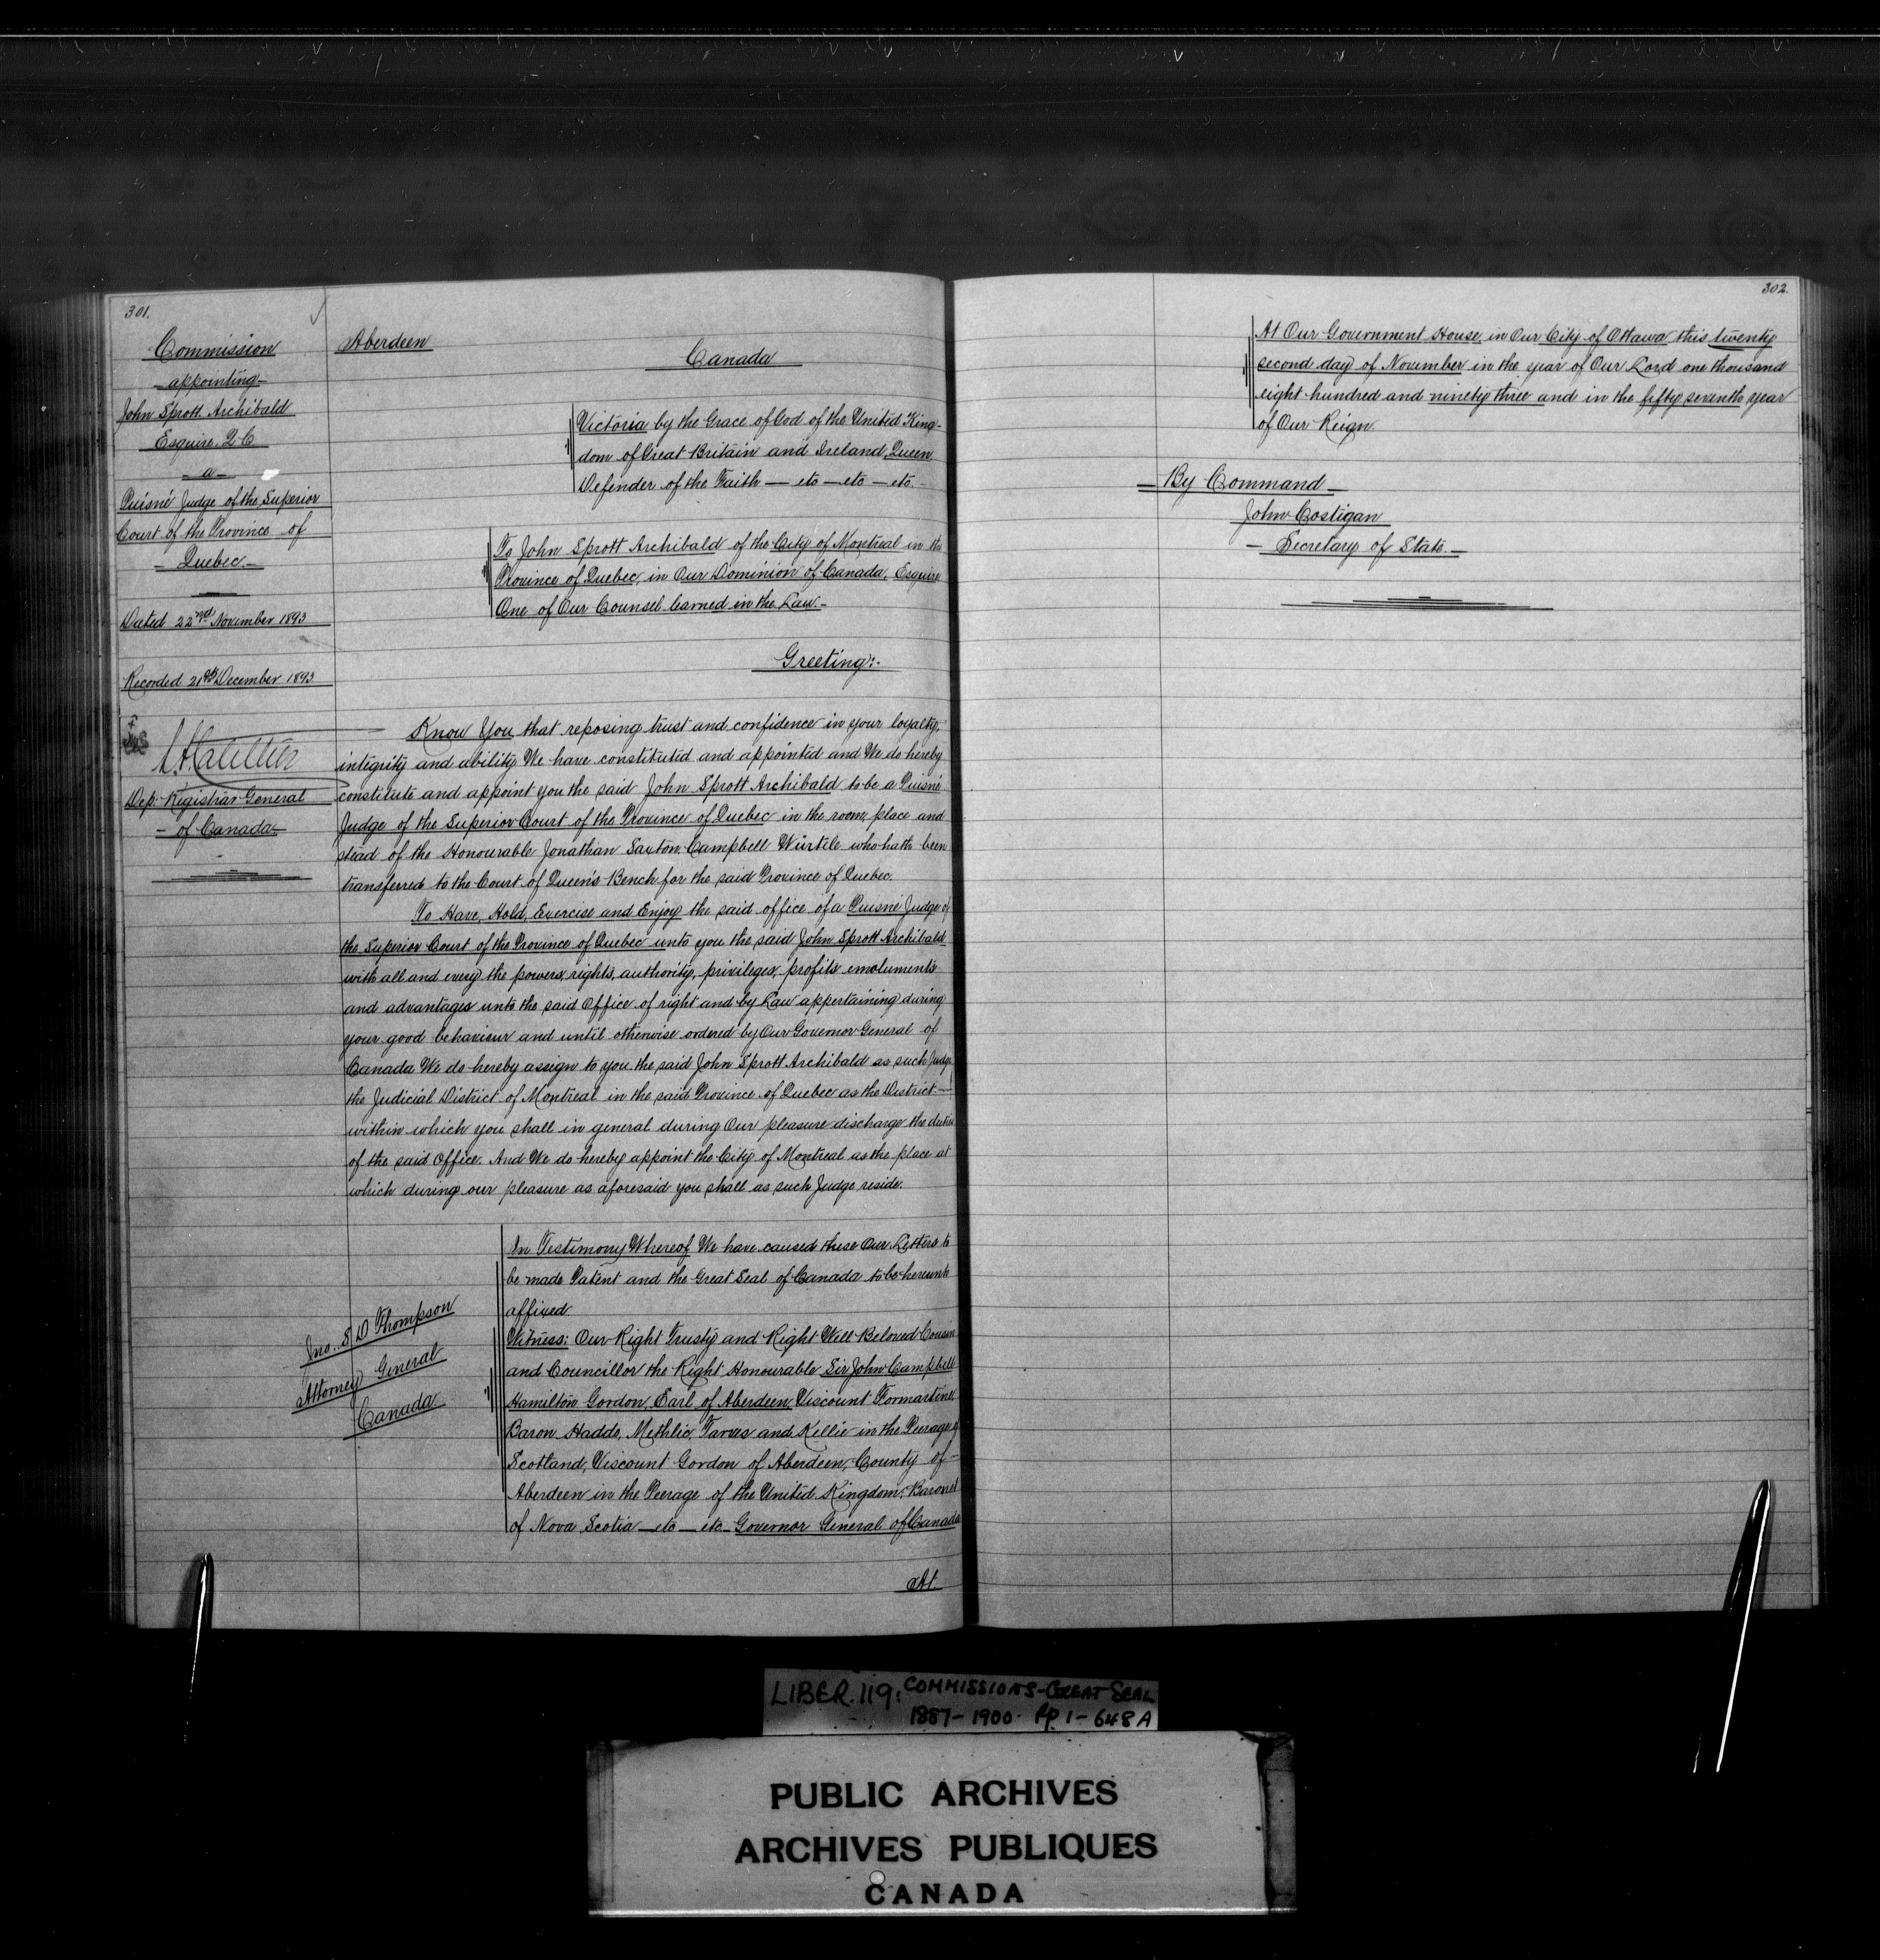 301.
Commission
appointing
John Sprott Archibald
Esquire. Q.C
a
Puisné Judge of the Superior
Court of the Province of
Quebec.
Dated 22nd November 1893
Recorded 21st December 1893
Dep: Registrar General
of Canada
Aberdeen
Canada
Victoria by the Grace of God of the United King-
dom of Great Britain and Ireland, Queen
Defender of the Faith — etc — etc — etc -
To John Sprott Archibald of the City of Montreal in the
Province of Quebec, in Our Dominion of Canada, Esquire
One of Our Counsel learned in the Law.-
Greeting:-
Know You that reposing trust and confidence in your loyalty,
integrity and ability We have constituted and appointed and We do hereby
constitute and appoint you the said John Sprott Archibald to be a Puisné
Judge of the Superior Court of the Province of Quebec in the room, place and
stead of the Honourable Jonathan Saxton Campbell Würtele who hath been
transferred to the Court of Queen's Bench for the said Province of Quebec.
To Have, Hold, Exercise and Enjoy the said office of a Puisné Judge of
the Superior Court of the Province of Quebec unto you the said John Sprott Archibald
with all and every the powers, rights, authority, privileges, profits emoluments
and advantages unto the said Office of right and by Law appertaining during
your good behaviour and until otherwise ordered by Our Governor General of
Canada We do hereby assign to you the said John Sprott Archibald as such Judge
the Judicial District of Montreal in the said Province of Quebec as the District —
within which you shall in general during Our pleasure discharge the duties
of the said Office. And We do hereby appoint the City of Montreal as the place at
which during our pleasure as aforesaid you shall as such Judge reside.
In Testimony Whereof We have caused these Our Letters to
be made Patent and the Great Seal of Canada to be hereunto
affixed.
Witness: Our Right Trusty and Right Well Beloved Cousin
and Councillor the Right Honourable Sir John Campbell
Hamilton Gordon, Earl of Aberdeen, Viscount Formartine
Baron Haddo, Methlic, Tarves and Kellie in the Peerage of
Scotland, Viscount Gordon of Aberdeen, County of —
Aberdeen in the Peerage of the United Kingdom, Baronet
of Nova Scotia — etc — etc — Governor General of Canada
At
Jno. S D Thompson
Attorney General
Canada
302.
At Our Government House, in Our City of Ottawa this twenty
second day of November in the year of Our Lord one thousand
eight hundred and ninety three and in the fifty seventh year
of Our Reign.
By Command
John Costigan
Secretary of State
LIBER.119: COMMISSIONS-GREAT SEAL
1887-1900. Pp. 1-648A
PUBLIC ARCHIVES
ARCHIVES PUBLIQUES
CANADA